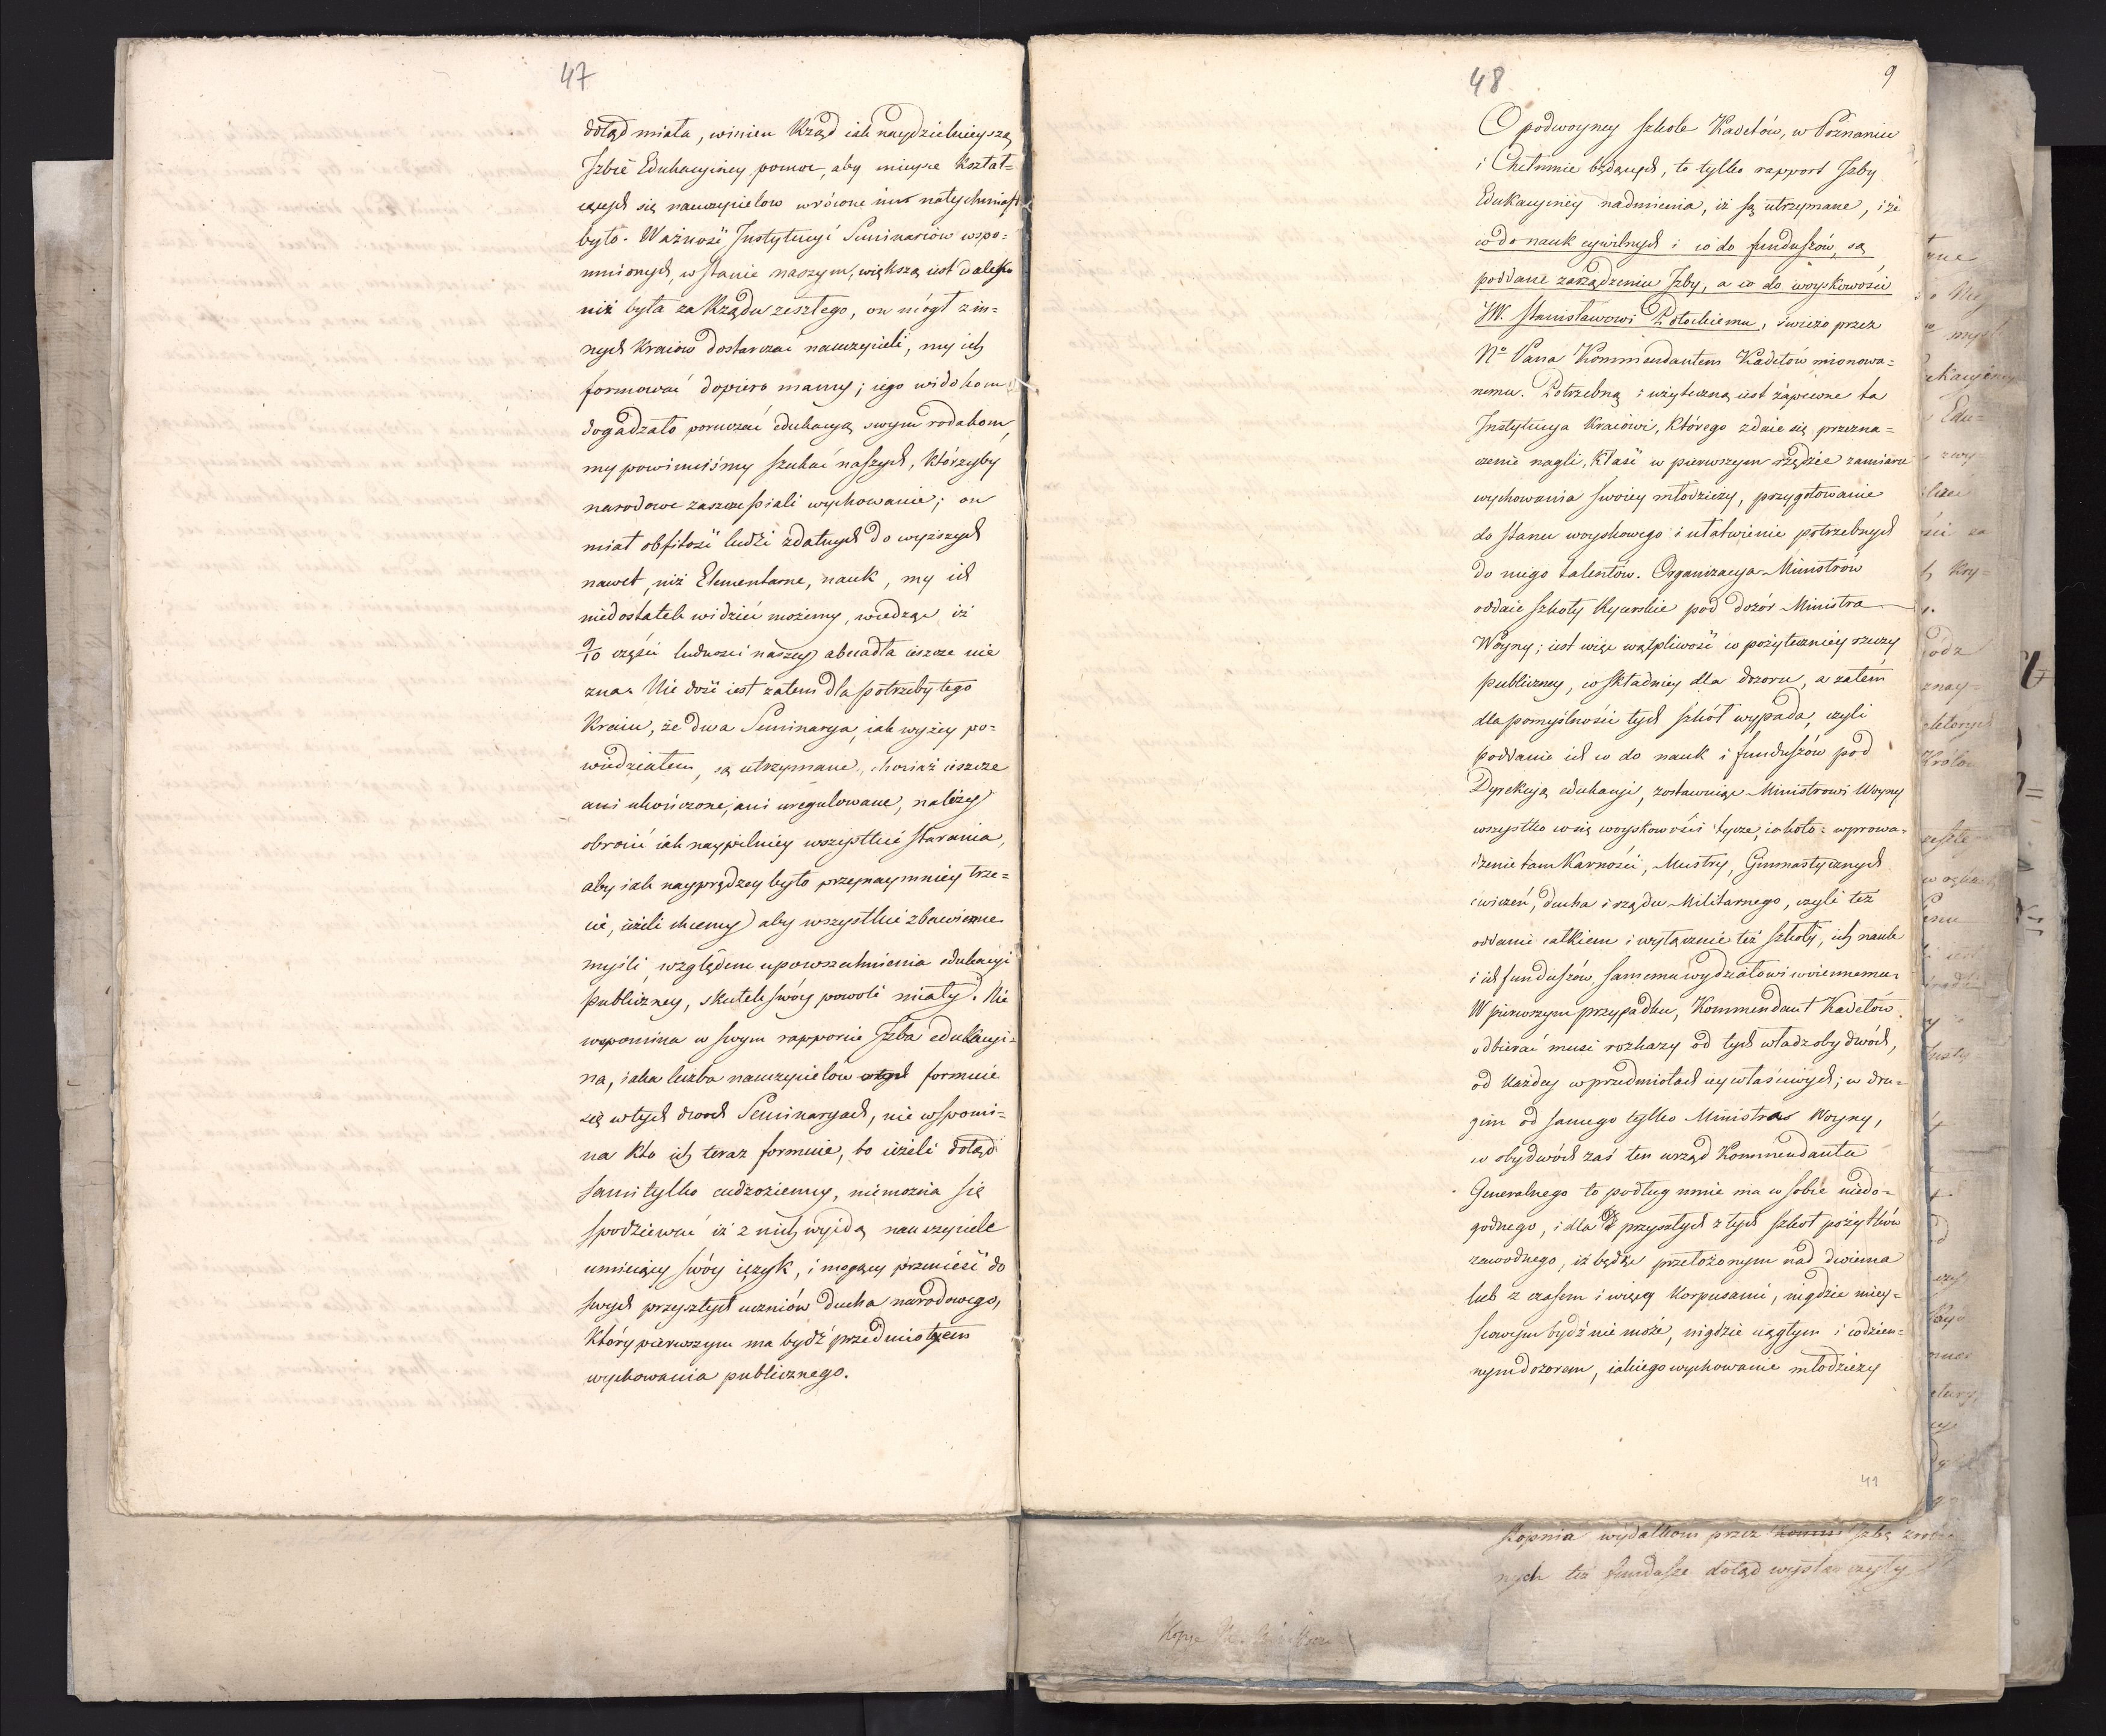 47
dotąd miała, winien Rząd iak naydzielnieyszą
Jzbie Edukacyiney pomoc, aby mieysce kształ=
cących się nauczycielow wrócone im natychmiast
było. Ważność Jnstytucyi Seminariów wspo=
mnionych, w stanie naszym, większą iest daleko
niż była za Rządu zeszłego, on mógł z in=
nych kraiów dostarczać nauczycieli, my ich
formować dopiero mamy; iego widokom
dogadzało poruczać edukacyą swym rodakom,
my powinniśmy szukać naszych, którzyby
narodowe zaszczepiali wychowanie; on
miał obfitość ludzi zdatnych do wyższych
nawet, niż Elementarne, nauk, my ich
niedostatek widzieć możemy, wiedząc iż
9/10 części ludności naszey abecadła ieszcze nie
zna. Nie dość iest zatem dla potrzeby tego
Kraiu, że dwa Seminarya, iak wyżey po=
wiedziałem, są utrzymane, chociaż ieszcze
ani ukończone, ani uregulowane, należy
obrócić iak naypilniey wszystkie starania,
aby iak nayprędzey było przynaymniey trze=
cie, ieżeli chcemy aby wszystkie zbawienne
myśli względem upowszechnienia edukacyi
publiczney, skutek swóy powoli miały. Nie
wspomina w swym rapporcie Jzba edukacyi=
na, iaka liczba nauczycielow formuie
się w tych dwoch Seminaryach, nie wspomi=
na kto ich teraz formuie, bo ieżeli dotąd
sami tylko cudzoziemcy, niemożna się
spodziewać iż z nich wyidą nauczyciele
umieiący swóy ięzyk, i mogący przenieść do
swych przyszłych uczniów ducha narodowego,
który pierwszym ma bydź przedmiotem
wychowania publicznego.
48
9
O podwoyney szkole Kadetów, w Poznaniu
i Chełmnie będących, to tylko rapport Jzby
Edukacyiney nadmienia, iż są utrzymane, i że
co do nauk cywilnych i co do funduszów, są
poddane zarządzeniu Jzby, a co do woyskowości
JW. Stanisławowi Potockiemu, świeżo przez
Nº Pana Kommendantem Kadetów mianowa=
nemu. Potrzebną i użyteczną iest zapewne ta
Jnstytucya Kraiowi, którego zdaie się przezna=
czenie nagli, kłaść w pierwszym rzędzie zamiaru
wychowania swoiey młodzieży, przygotowanie
do stanu woyskowego i ułatwienie potrzebnych
do niego talentów. Organizacya Ministrow
oddaie szkoły Rycerskie pod dozór Ministra
Woyny; iest więc wątpliwość co pożyteczniey rzeczy
publiczney, co składniey dla dozoru, a zatém
dla pomyślności tych szkół wypada, czyli
poddanie ich co do nauk i funduszów pod
Dyrekcyą edukacyi, zostawuiąc Ministrowi Woyny
wszystko co się woyskowości tycze, iakoto: wprowa=
dzenie tam Karności, Mustry, Gimnastycznych
ćwiczeń, ducha i rządu Militarnego, czyli też
oddanie całkiem i wyłącznie też szkoły, ich nauk
i ich funduszów, samemu wydziałowi woiennemu.
W pierwszym przypadku, Kommendant Kadetów
odbierać musi rozkazy od tych władz obydwóch,
od każdey w przedmiotach iey właściwych; w dru=
gim od samego tylko Ministra Woyny,
w obydwóch zaś ten urząd Kommendanta
Generalnego to podług mnie ma w sobie niedo=
godnego, i dla przyszłych z tych szkół pożytków
zawodnego, iż będąc przełożonym nad dwiema
lub z czasem i więcey korpusami, nigdzie miey=
scowym bydź nie może, nigdzie ciągłym i codzien=
nym dozorem, iakiego wychowanie młodzieży
41
stopnia wydatkom przez Jzbę
nych też fundusze dotąd wystarczyły
Kopia